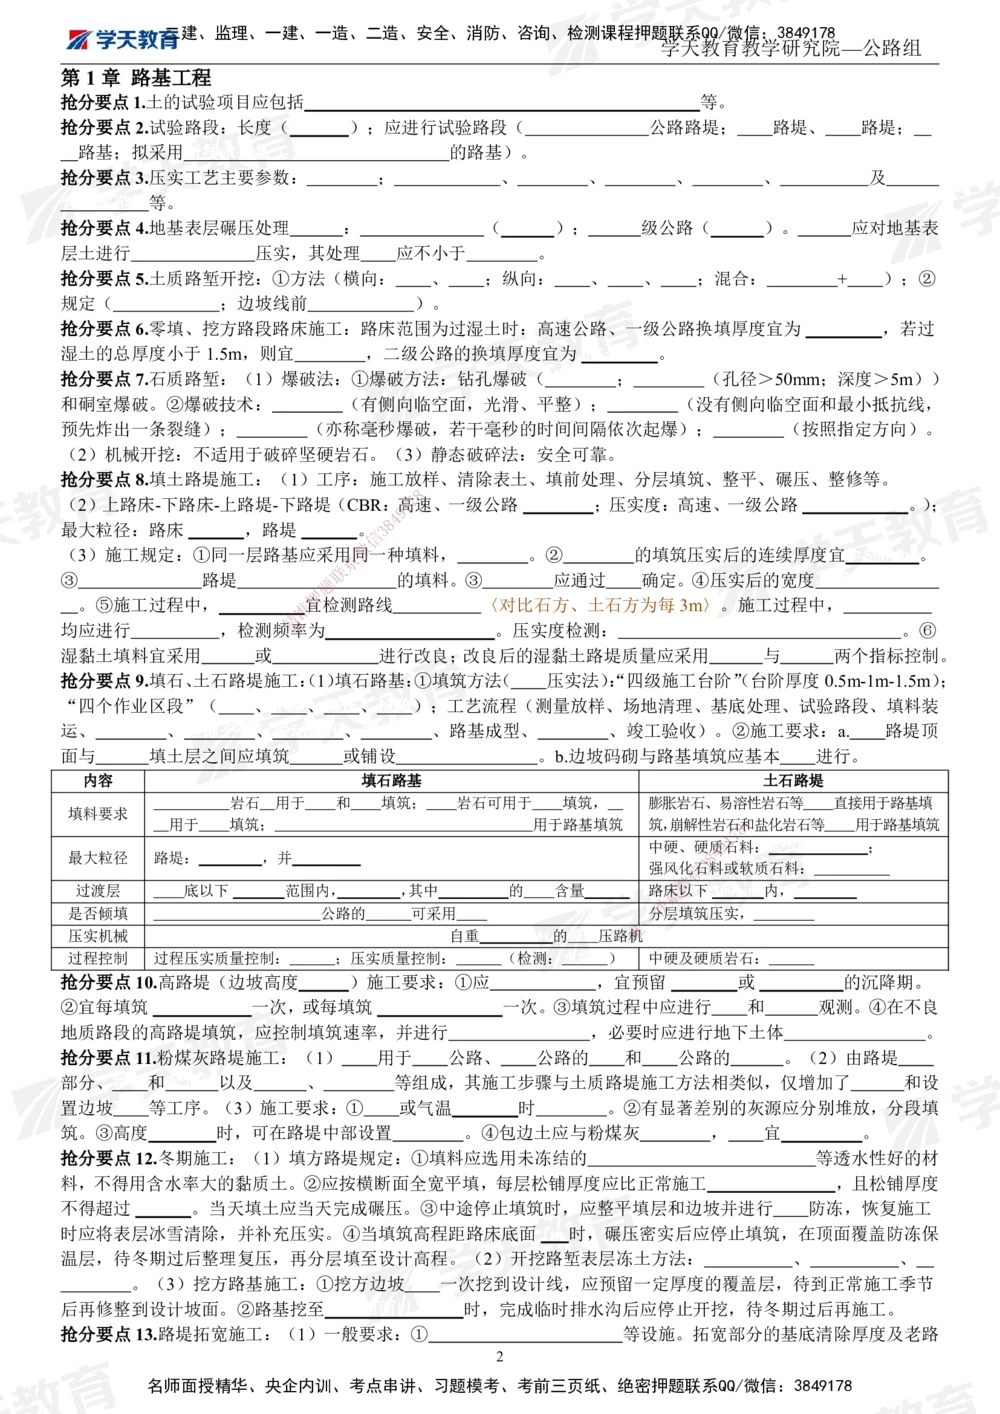 学天教育二建、监理、一建、一造、二造、安全、消防、咨询、检测课程押题联系QQ/微信：3849178
学天教育教学研究院—公路组
第1章 路基工程
抢分要点1.土的试验项目应包括____________________等。
抢分要点2.试验路段：长度（______）；应进行试验路段（______________公路路堤；____路堤、____路堤；__
__路基；拟采用______________________________的路基）。
抢分要点3.压实工艺主要参数：________；____________、________、________、________、__________及______
__________等。
抢分要点4.地基表层碾压处理______：______________（______）；______级公路（______）。______应对地基表
层土进行______________压实，其处理____应不小于________。
抢分要点5.土质路堑开挖：①方法（横向：____、____；纵向：____、____、____；混合：________+____）；②
规定（____________；边坡线前____________）。
抢分要点6.零填、挖方路段路床施工：路床范围为过湿土时：高速公路、一级公路换填厚度宜为 ________，若过
湿土的总厚度小于 1.5m，则宜________，二级公路的换填厚度宜为 ________。
抢分要点7.石质路堑：（1）爆破法：①爆破方法：钻孔爆破（________；________（孔径＞50mm；深度＞5m））
和硐室爆破。②爆破技术：________（有侧向临空面，光滑、平整）；________（没有侧向临空面和最小抵抗线，
预先炸出一条裂缝）；________（亦称毫秒爆破，若干毫秒的时间间隔依次起爆）；________（按照指定方向）。
（2）机械开挖：不适用于破碎坚硬岩石。（3）静态破碎法：安全可靠。
抢分要点8.填土路堤施工：（1）工序：施工放样、清除表土、填前处理、分层填筑、整平、碾压、整修等。
（2）上路床-下路床-上路堤-下路堤（CBR：高速、一级公路 ________；压实度：高速、一级公路 ____________。）；
最大粒径：路床 ______，路堤 ______。
（3）施工规定：①同一层路基应采用同一种填料，________。②________的填筑压实后的连续厚度宜________。
③______________路堤__________________的填料。③________应通过____确定。④压实后的宽度______________
__。⑤施工过程中，__________宜检测路线__________〈对比石方、土石方为每 3m〉。施工过程中，__________
均应进行__________，检测频率为__________________。压实度检测：________________________________。⑥
湿黏土填料宜采用______或____________进行改良；改良后的湿黏土路堤质量应采用______与______两个指标控制。
抢分要点9.填石、土石路堤施工：（1）填石路基：①填筑方法（____压实法）：“四级施工台阶”（台阶厚度 0.5m-1m-1.5m）；
“四个作业区段”（____、____、____、____）；工艺流程（测量放样、场地清理、基底处理、试验路段、填料装
运、________、________、________、________、路基成型、________、竣工验收）。②施工要求：a.____路堤顶
面与______填土层之间应填筑______或铺设________________。b.边坡码砌与路基填筑应基本____进行。
内容 填石路基 土石路堤
填料要求 __________岩石__用于____和____填筑；____岩石可用于____填筑，__ 膨胀岩石、易溶性岩石等____直接用于路基填
__用于____填筑；__________________________________用于路基填筑 筑，崩解性岩石和盐化岩石等____用于路基填筑
最大粒径 路堤：________，并________ 中硬、硬质石料：____________；
强风化石料或软质石料：__________
过渡层 ____底以下 ______范围内，________，其中________的____含量______ 路床以下 ______内，________
是否倾填 ____________________公路的______可采用____ 分层填筑压实，________
压实机械 自重________的____压路机
过程控制 过程压实质量控制：______；压实质量控制：______（检测：______） 中硬及硬质岩石：______
抢分要点10.高路堤（边坡高度______）施工要求：①应____________，宜预留 ________或 __________的沉降期。
②宜每填筑 ____________一次，或每填筑 ______________一次。③填筑过程中应进行____和______观测。④在不良
地质路段的高路堤填筑，应控制填筑速率，并进行________________，必要时应进行地下土体________________。
抢分要点11.粉煤灰路堤施工：（1）____用于____公路、____公路的____和____公路的______。（2）由路堤____
部分、____和______以及______、________等组成，其施工步骤与土质路堤施工方法相类似，仅增加了______和设
置边坡____等工序。（3）施工要求：①____或气温________时________。②有显著差别的灰源应分别堆放，分段填
筑。③高度________时，可在路堤中部设置________。④包边土应与粉煤灰________，____宜__________。
抢分要点12.冬期施工：（1）填方路堤规定：①填料应选用未冻结的__________________________等透水性好的材
料，不得用含水率大的黏质土。②应按横断面全宽平填，每层松铺厚度应比正常施工______________，且松铺厚度
不得超过 ______。当天填土应当天完成碾压。③中途停止填筑时，应整平填层和边坡并进行____防冻，恢复施工
时应将表层冰雪清除，并补充压实。④当填筑高程距路床底面 ____时，碾压密实后应停止填筑，在顶面覆盖防冻保
温层，待冬期过后整理复压，再分层填至设计高程。（2）开挖路堑表层冻土方法：__________、__________、__
________。（3）挖方路基施工：①挖方边坡____一次挖到设计线，应预留一定厚度的覆盖层，待到正常施工季节
后再修整到设计坡面。②路基挖至________________时，完成临时排水沟后应停止开挖，待冬期过后再施工。
抢分要点13.路堤拓宽施工：（1）一般要求：①______________________等设施。拓宽部分的基底清除厚度及老路
2
名师面授精华、央企内训、考点串讲、习题模考、考前三页纸、绝密押题联系QQ/微信：3849178